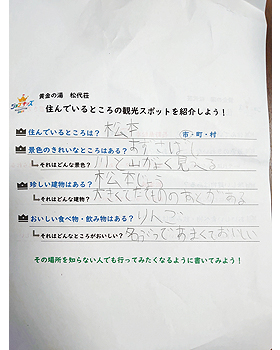 黄金の湯 松代荘
住んでいるところの観光スポットを紹介しよう!
住んでいるところは? 松本 市・町・村
景色のきれいなところはある? あずさばし
それはどんな景色? 川と山がよく見える
珍しい建物はある? 松本じょう
それはどんな建物? 大きくてたものの
おいしい食べ物・飲み物はある? りんご
それはどんなところがおいしい? 名ぶつであまくておいしい
その場所を知らない人でも行ってみたくなるように書いてみよう!